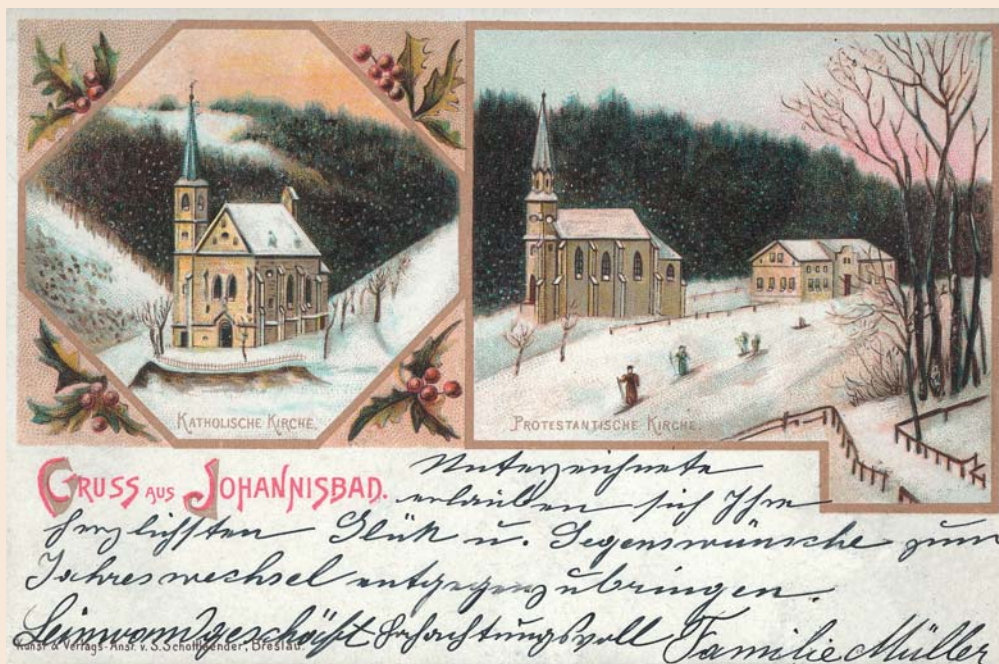 KATHOLISCHE KIRCHE.
PROTESTANTISCHE KIRCHE.
GRUSS AUS JOHANNISBAD.
Unterzeichnete
erlauben sich Ihre
herzlichsten Glük u. Segenswünsche zum
Jahreswechsel entgegenzubringen.
Leinwandgeschäft Hochachtungsvoll Familie Müller
Kunst & Verlags-Anst. v. S. Schottlaender, Breslau.